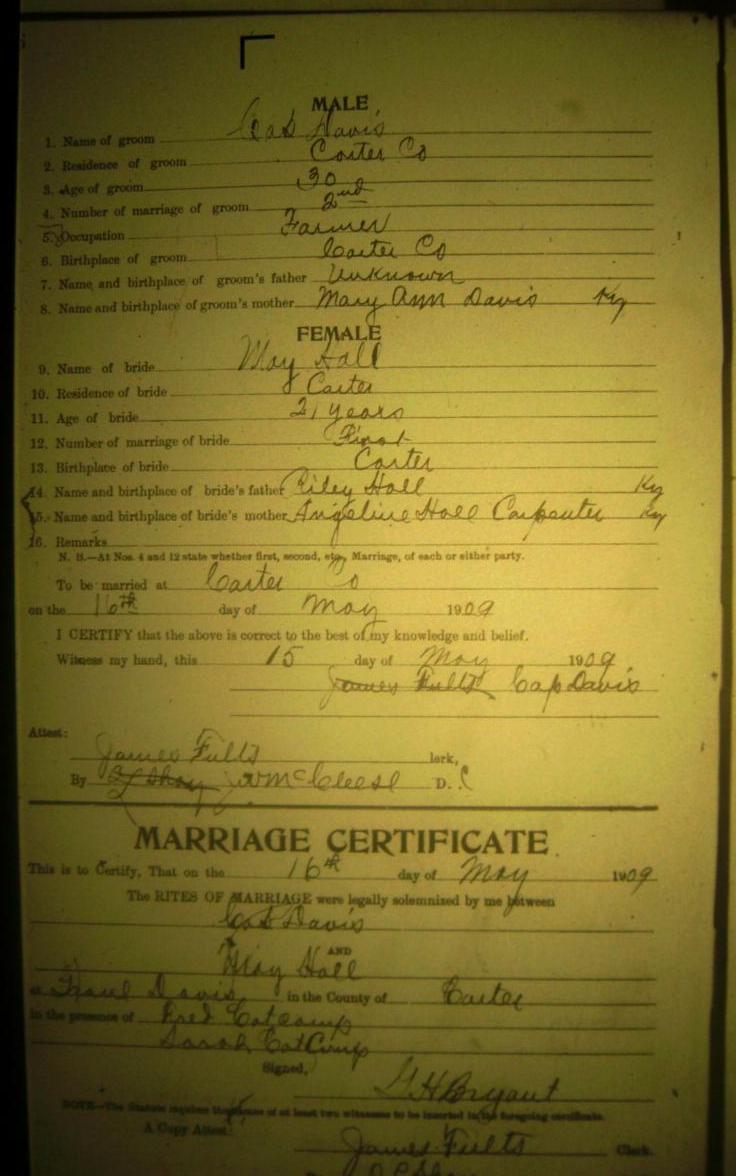 MALE
1. Name of groom Davis
2. Residence of groom Carter Co
3. Age of groom 30
4. Number of marriage of groom 2nd
5. Occupation Farmer
6. Birthplace of groom Carter Co
7. Name and birthplace of groom's father Unknown
8. Name and birthplace of groom's mother Mary Ann Davis Ky
FEMALE
9. Name of bride May Hall
10. Residence of bride Carter
11. Age of bride 21 years
12. Number of marriage of bride First
13. Birthplace of bride Carter
14. Name and birthplace of bride's father Riley Hall Ky
15. Name and birthplace of bride's mother Angeline Hall Carpenter Ky
16. Remarks
N. B.—At Nos. 4 and 12 state whether first, second, etc., Marriage, of each or either party.
To be married at Carter Co
on the 16th day of May 1909
I CERTIFY that the above is correct to the best of my knowledge and belief.
Witness my hand, this 15 day of May 1909
James Fults Cap Davis
Attest:
James Fults lerk,
By D. C
MARRIAGE CERTIFICATE
This is to Certify, That on the 16th day of May 1909
The RITES OF MARRIAGE were legally solemnized by me between
Davis
AND
May Hall
Davis in the County of Carter
in the presence of Fred Catcamp
Sarah
Signed,
G H Bryant
NOTE—The Statute requires the names of at least two witnesses to be inserted in the foregoing certificate.
A Copy Attest:
James Fults Clerk.